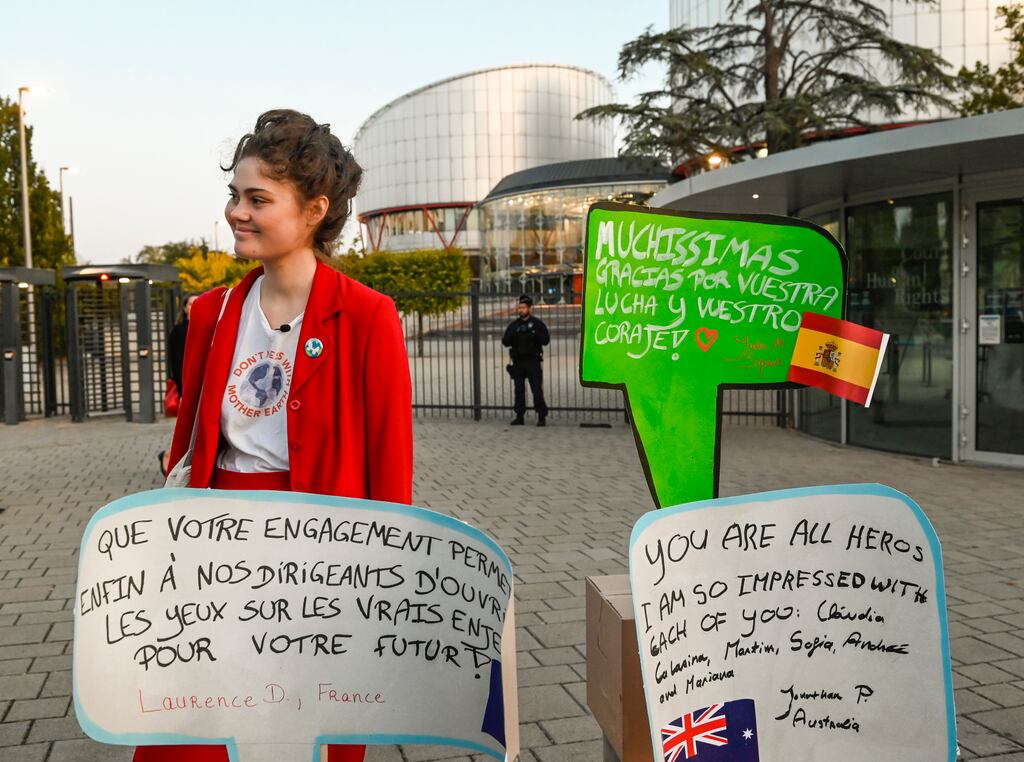 DON'T MESS WITH
MOTHER EARTH
MUCHISSIMAS
GRACIAS POR VUESTRA
LUCHA Y VUESTRO
CORAJE!
Court
Human
Rights
QUE VOTRE ENGAGEMENT PERME
ENFIN À NOS DIRIGEANTS D'OUVR
LES YEUX SUR LES VRAIS ENJE
POUR VOTRE FUTUR!
Laurence D., France
YOU ARE ALL HEROS
I AM SO IMPRESSED WITH
EACH OF YOU: Cláudia
Catarina, Martim, Sofia, André
and Mariana
Jonathan P.
Australia